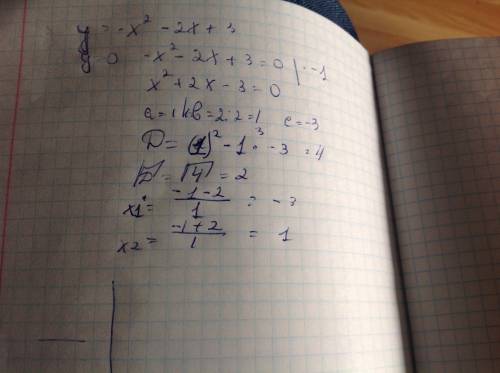 y = -x² - 2x + 3
y = 0 -x² - 2x + 3 = 0 | · -1
x² + 2x - 3 = 0
a = 1 k b = 2 : 2 = 1 c = -3
D = (1)² - 1 · -3 = 4
√D = √4 = 2
x1 = (-1 - 2)/1 = -3
x2 = (-1 + 2)/1 = 1